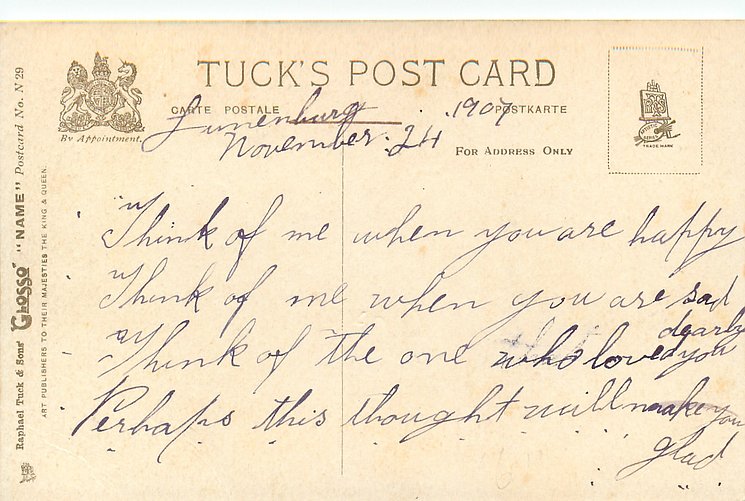 TUCK'S POST CARD
CARTE POSTALE
POSTKARTE
By Appointment.
FOR ADDRESS ONLY
Lunenburg
November. 24 .1907
"Think of me when you are happy
"Think of me when you are sad
"Think of the one who loved you dearly
Perhaps this thought will make you
glad
Raphael Tuck & Sons' "GLOSSO" "NAME" Postcard No. N 29
ART PUBLISHERS TO THEIR MAJESTIES THE KING & QUEEN.
ARTISTIC
SERIES
TRADE MARK